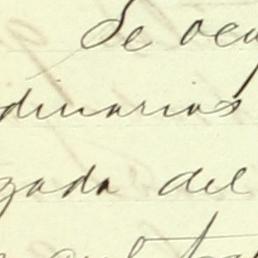 Se ocu
dinarios
zada del